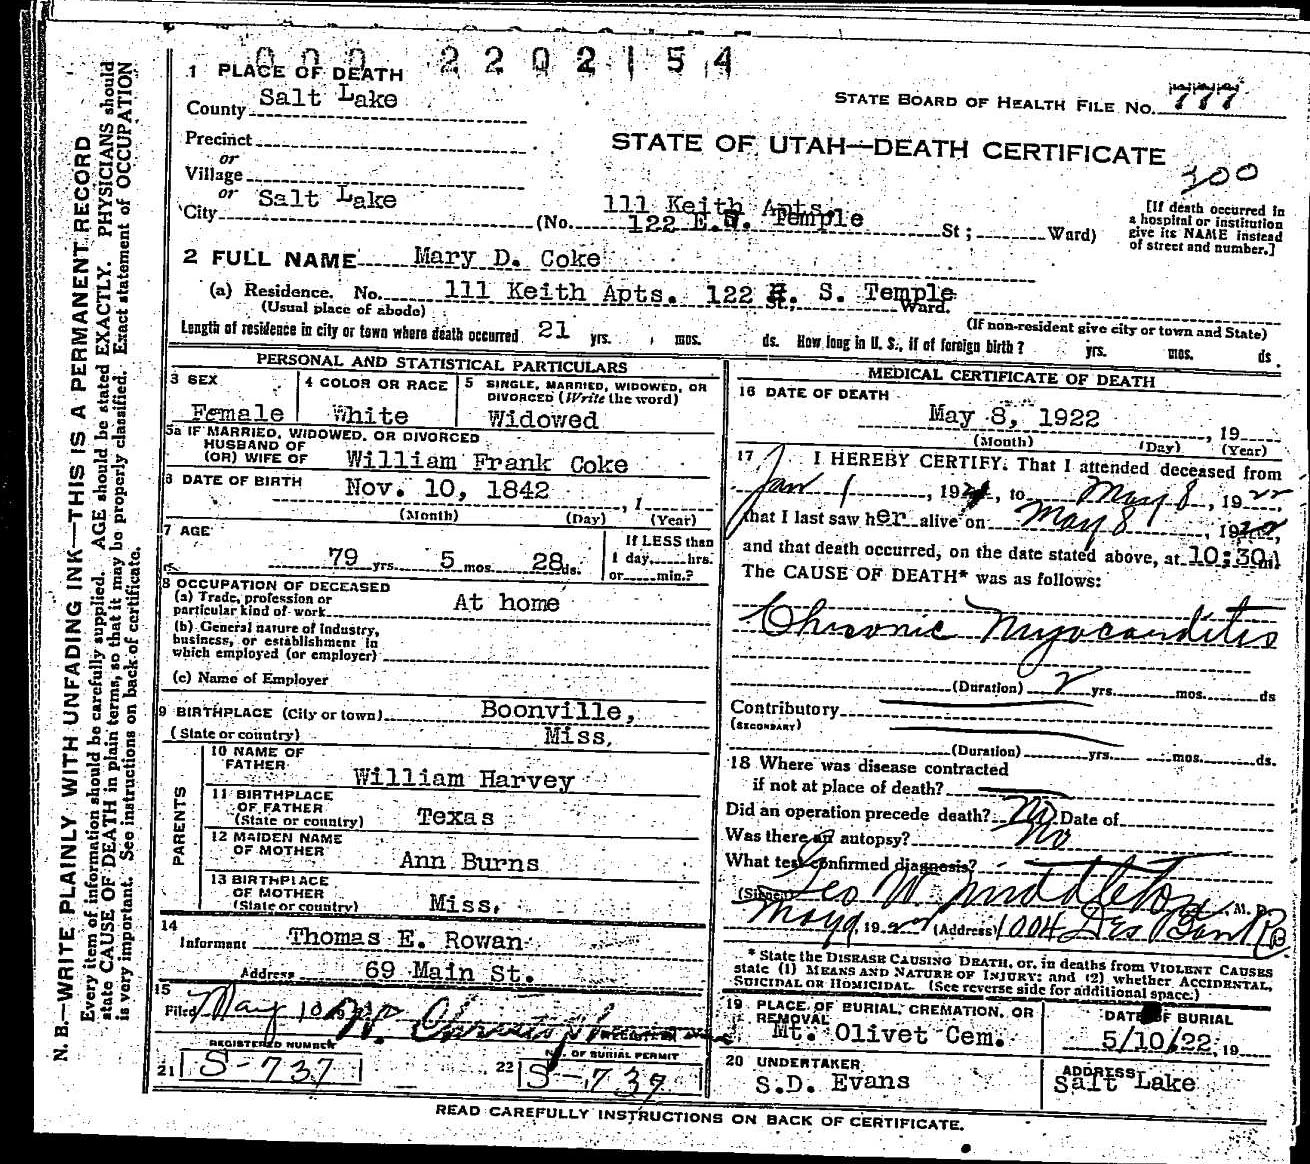 000 2202154
1 PLACE OF DEATH
County Salt Lake
STATE BOARD OF HEALTH FILE No. 777
Precinct
or
Village
or
City Salt Lake
STATE OF UTAH—DEATH CERTIFICATE
300
111 Keith Apts.
(No. 122 E. S. Temple St; Ward)
[If death occurred in
a hospital or institution
give its NAME instead
of street and number.]
2 FULL NAME Mary D. Coke
(a) Residence. No. 111 Keith Apts. 122 E. S. Temple St., Ward.
(Usual place of abode)
(If non-resident give city or town and State)
Length of residence in city or town where death occurred 21 yrs. mos. ds. How long in U. S., if of foreign birth? yrs. mos. ds.
PERSONAL AND STATISTICAL PARTICULARS
3 SEX
Female
4 COLOR OR RACE
White
5 SINGLE, MARRIED, WIDOWED, OR
DIVORCED (Write the word)
Widowed
5a IF MARRIED, WIDOWED, OR DIVORCED
HUSBAND OF
(OR) WIFE OF William Frank Coke
6 DATE OF BIRTH Nov. 10, 1842 , 1
(Month) (Day) (Year)
7 AGE
79 yrs. 5 mos. 28 ds.
If LESS than
1 day, hrs.
or min.?
8 OCCUPATION OF DECEASED
(a) Trade, profession or
particular kind of work At home
(b) General nature of industry,
business, or establishment in
which employed (or employer)
(c) Name of Employer
9 BIRTHPLACE (City or town) Boonville,
(State or country) Miss.
PARENTS
10 NAME OF
FATHER
William Harvey
11 BIRTHPLACE
OF FATHER
(State or country) Texas
12 MAIDEN NAME
OF MOTHER Ann Burns
13 BIRTHPLACE
OF MOTHER
(State or country) Miss.
14
Informant Thomas E. Rowan
Address 69 Main St.
15
Filed May 10
REGISTRAR
REGISTERED NUMBER
21 S-737
NO. OF BURIAL PERMIT
22 S-737
MEDICAL CERTIFICATE OF DEATH
16 DATE OF DEATH
May 8, 1922 , 19
(Month) (Day) (Year)
17 I HEREBY CERTIFY, That I attended deceased from
Jan 1 , 192 , to May 8 , 1922
that I last saw her alive on May 8 , 1922,
and that death occurred, on the date stated above, at 10:30 m.
The CAUSE OF DEATH* was as follows:
Chronic Myocarditis
(Duration) 2 yrs. mos. ds
Contributory
(SECONDARY)
(Duration) yrs. mos. ds.
18 Where was disease contracted
if not at place of death?
Did an operation precede death? No Date of
Was there an autopsy? No
What test confirmed diagnosis?
(Signed) Geo W. Middleton, M. D.
May 9, 1922 (Address) 1004 Des Bank
* State the DISEASE CAUSING DEATH, or, in deaths from VIOLENT CAUSES
state (1) MEANS AND NATURE OF INJURY; and (2) whether ACCIDENTAL,
SUICIDAL OR HOMICIDAL. (See reverse side for additional space.)
19 PLACE OF BURIAL, CREMATION, OR
REMOVAL
Mt. Olivet Cem.
DATE OF BURIAL
5/10/22, 19
20 UNDERTAKER
S.D. Evans
ADDRESS
Salt Lake
READ CAREFULLY INSTRUCTIONS ON BACK OF CERTIFICATE.
N. B.—WRITE PLAINLY, WITH UNFADING INK—THIS IS A PERMANENT RECORD
Every item of information should be carefully supplied. AGE should be stated EXACTLY. PHYSICIANS should
state CAUSE OF DEATH in plain terms, so that it may be properly classified. Exact statement of OCCUPATION
is very important. See instructions on back of certificate.